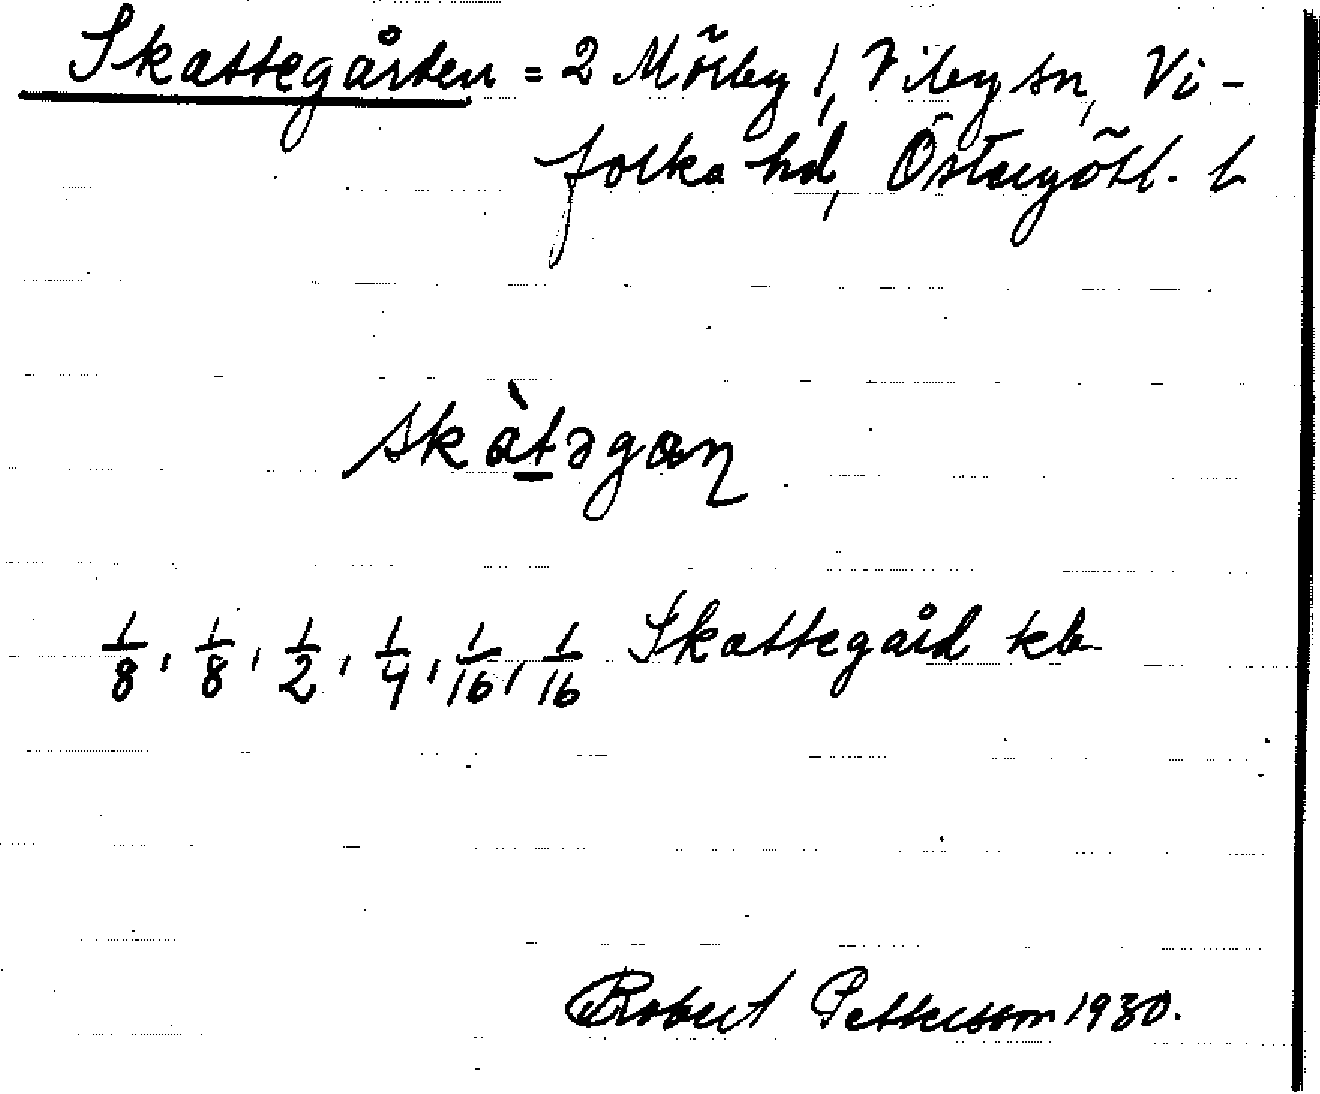 Skattegården = 2 Mörby 1, Viby sn, Vi-
folka hd, Östergötl. l
skàtəgaɳ
1/8, 1/8, 1/2, 1/4, 1/16, 1/16 Skattegård kb
Robert Pettersson 1930.